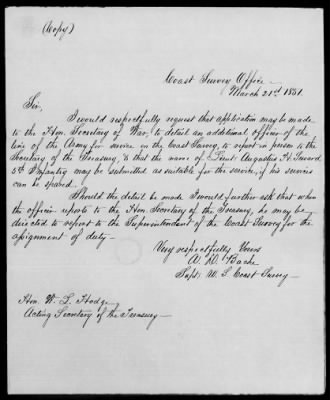 (Copy)
Coast Survey Office
March 21st 1851.
Sir,
I would respectfully request that application may be made
to the Hon. Secretary of War, to detail an additional officer of the
line of the Army for service in the Coast Survey, to report in person to the
Secretary of the Treasury, & that the name of Lieut. Augustus H. Seward
5th Infantry may be submitted as suitable for the service, if his services
can be spared.
Should the detail be made I would further ask that when
the officer reports to the Hon. Secretary of the Treasury, he may be
directed to report to the Superintendent of the Coast Survey for the
assignment of duty—
Very respectfully Yours
A. D. Bache
Supt. U. S. Coast Survey—
Hon. W. L. Hodge
Acting Secretary of the Treasury—